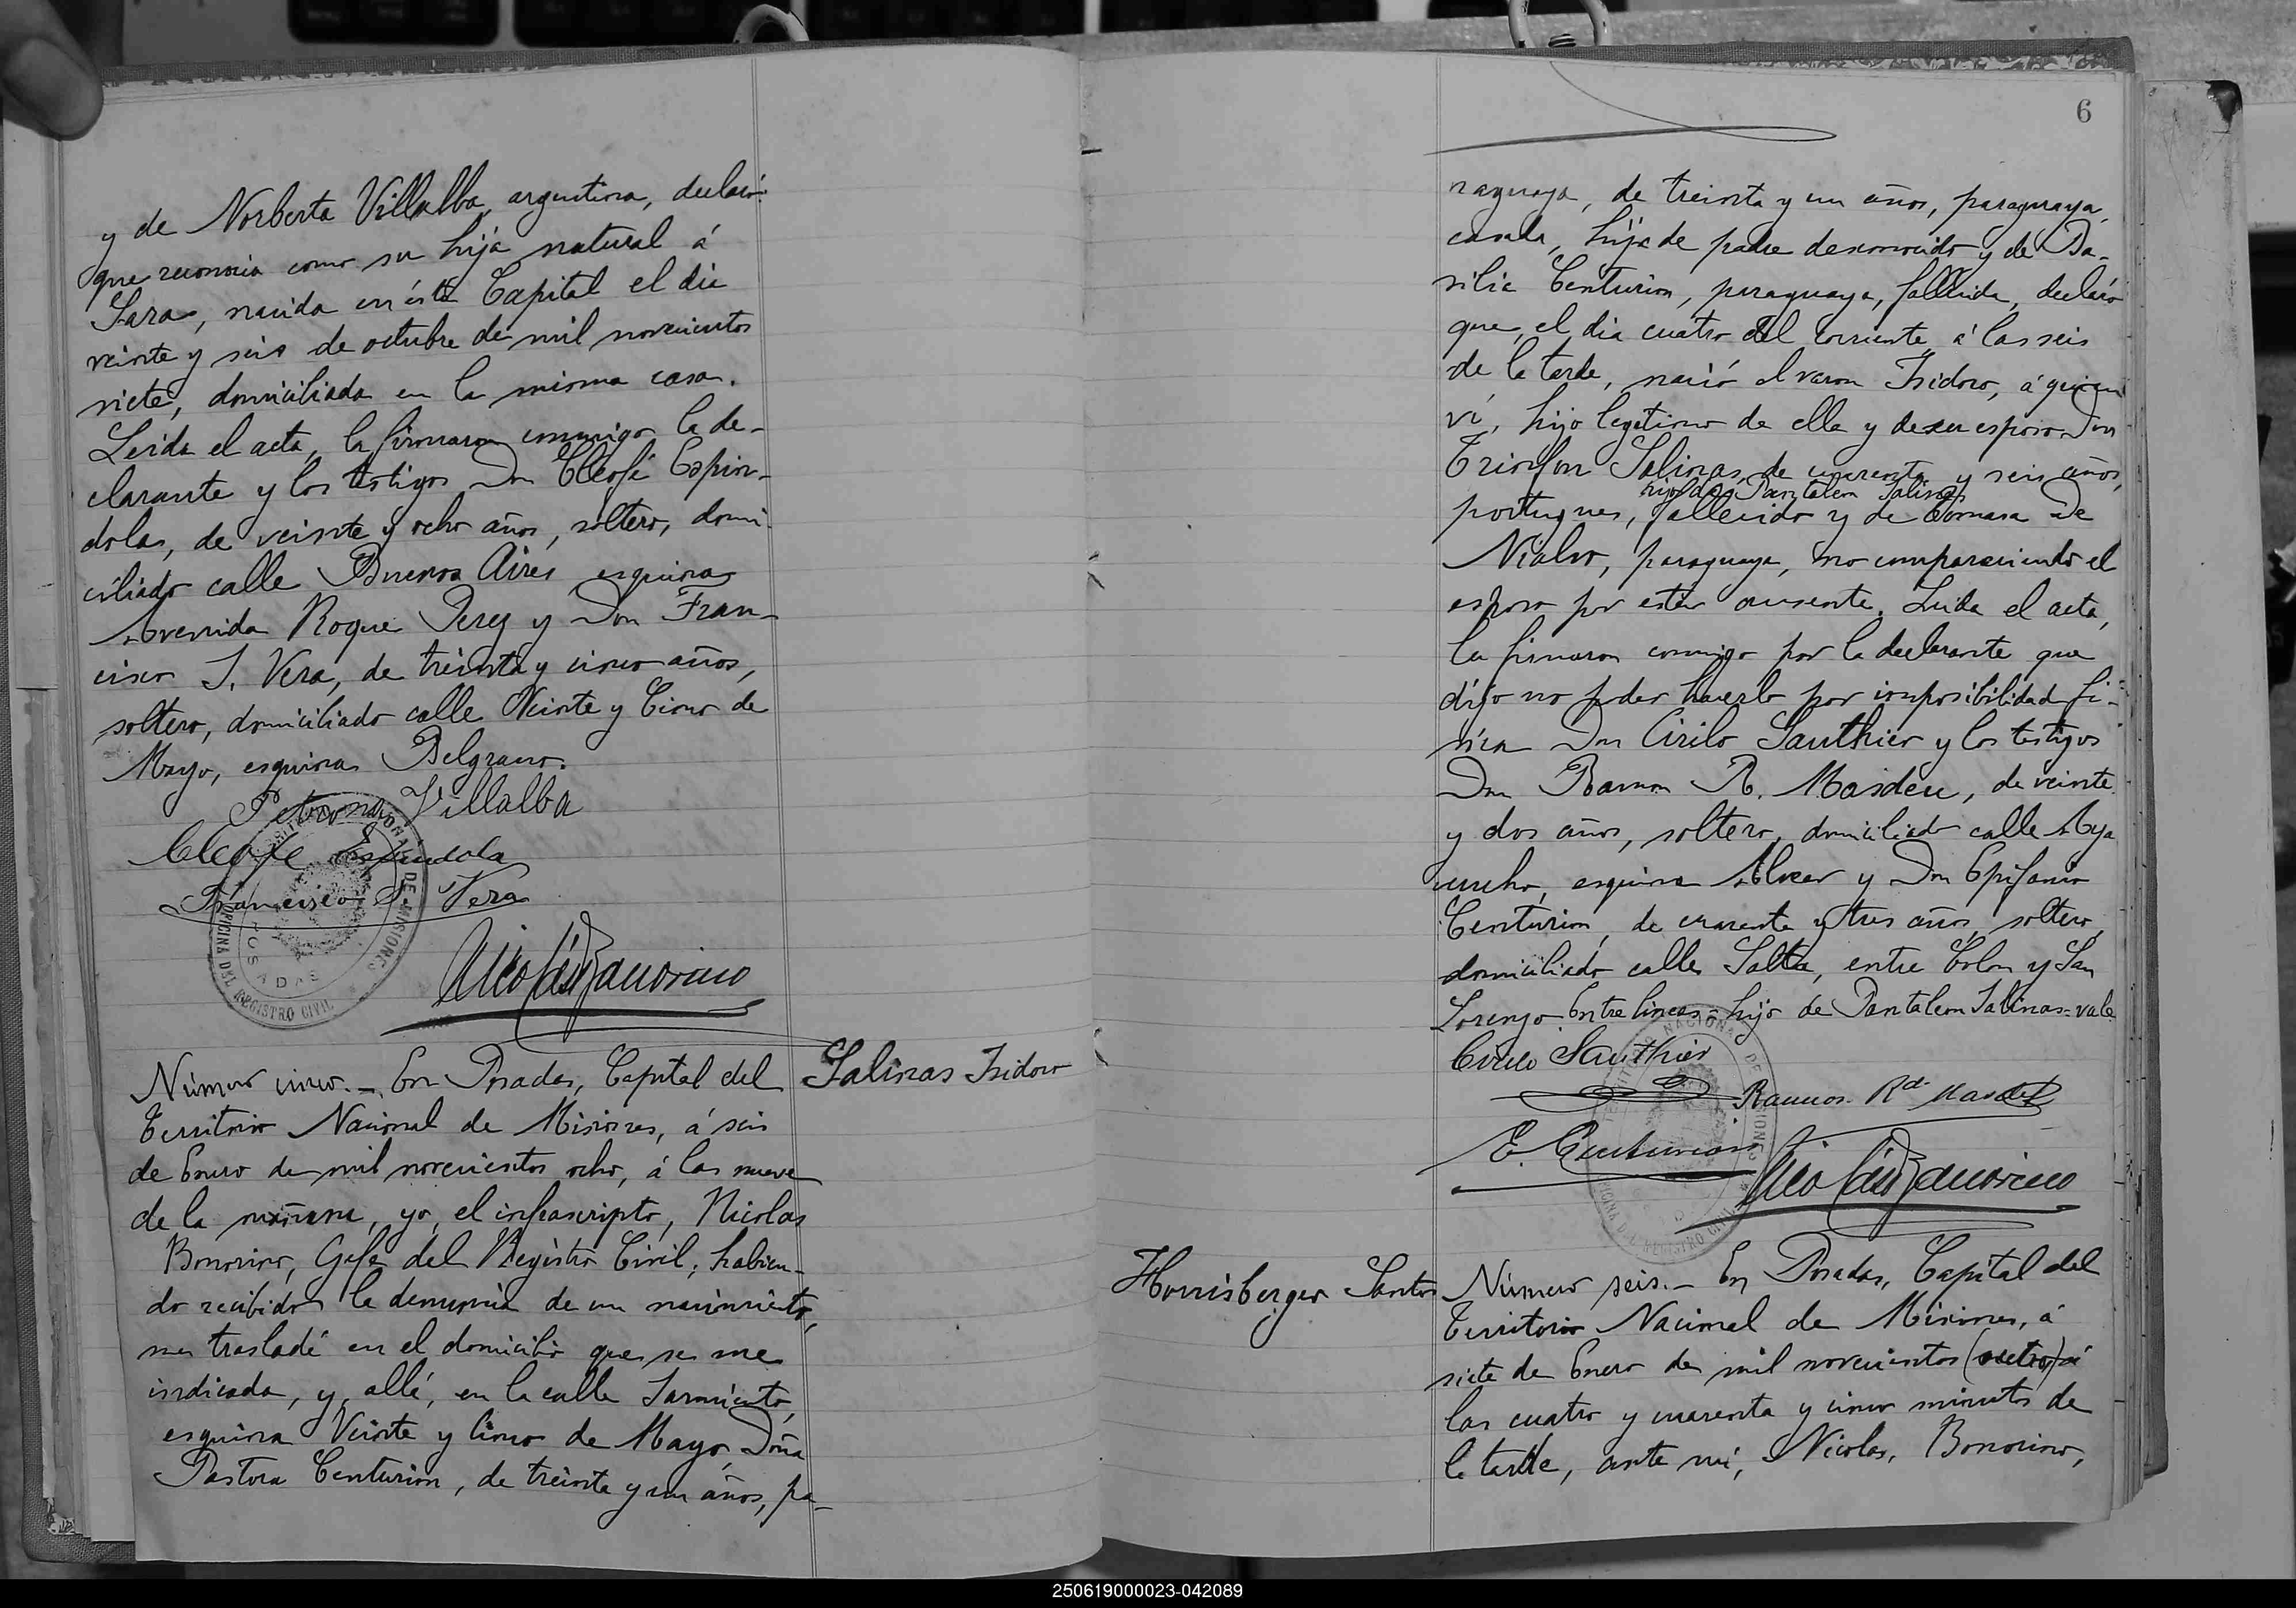 y de Norberta Villalba, argentina, declaró:
que reconocia como su hija natural á
Sara, nacida en ésta Capital el dia
veinte y seis de octubre de mil novecientos
siete, domiciliada en la misma casa.
Leida el acta, la firmaron conmigo la de-
clarante y los testigos Don Cleofé Espin-
dola, de veinte y ocho años, soltero, domi-
ciliado calle Buenos Aires esquina
Avenida Roque Perez y Don Fran-
cisco S. Vera, de treinta y cinco años,
soltero, domiciliado calle Veinte y Cinco de
Mayo, esquina Belgrano.
Petrona Villalba
Cleofe Espindola
Francisco S. Vera
Nicolás Bonorino
OFICINA DEL REGISTRO CIVIL
POSADAS
DE MISIONES
Número cinco.- En Posadas, Capital del
Salinas Isidoro
Territorio Nacional de Misiones, á seis
de Enero de mil novecientos ocho, á las nueve
de la mañana, yo, el infrascripto, Nicolas
Bonorino, Gefe del Registro Civil; habien-
do recibido la denuncia de un nacimiento,
me trasladé en el domicilio que se me
indicada, y, allé, en la calle Sarmiento,
esquina Veinte y Cinco de Mayo, Doña
Pastora Centurion, de treinta y un años, pa-
6
raguaya, de treinta y un años, paraguaya,
casada, hija de padre desconocido y de Ba-
silia Centurion, paraguaya, fallecida, declaró
que, el dia cuatro del corriente á las seis
de la tarde, nació el varon Isidoro, á quien
ví, hijo legitimo de ella y de su esposo Don
Trionfon Salinas, de cuarenta y seis años,
hijo de Pantaleon Salinas
portugues, fallecido y de Tomasa de
Nialvo, paraguaya, no compareciendo el
esposo por estar ausente. Leida el acta,
la firmaron conmigo por la declarante que
dijo no poder hacerlo por imposibilidad fi-
sica Don Cirilo Sauthier y los testigos
Don Ramon R. Masdeu, de veinte
y dos años, soltero, domiciliado calle Aya
cucho, esquina Alvear y Don Epifanio
Centurion, de cuarenta y tres años, soltero,
domiciliado calle Salta, entre Colon y San
Lorenzo. Entre lineas - hijo de Pantaleon Salinas = vale
Cirilo Sauthier
Ramon Rd. Masdeu
E. Centurion
Nicolás Bonorino
Horrisberger Santos
Número seis.- En Posadas, Capital del
Territorio Nacional de Misiones, á
siete de Enero de mil novecientos (ocho) á
las cuatro y cuarenta y cinco minutos de
la tarde, ante mí, Nicolas, Bonorino,
250619000023-042089